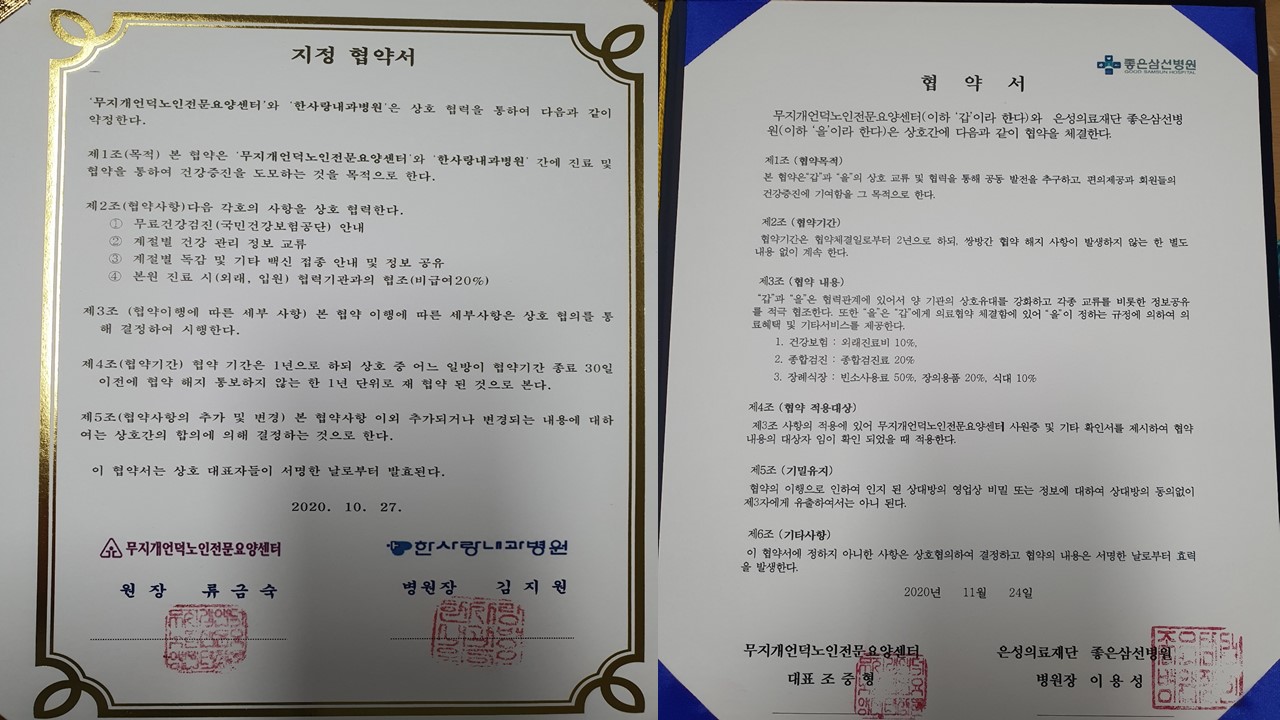 지정 협약서
'무지개언덕노인전문요양센터'와 '한사랑내과병원'은 상호 협력을 통하여 다음과 같이
약정한다.
제1조(목적) 본 협약은 '무지개언덕노인전문요양센터'와 '한사랑내과병원' 간에 진료 및
협약을 통하여 건강증진을 도모하는 것을 목적으로 한다.
제2조(협약사항)다음 각호의 사항을 상호 협력한다.
① 무료건강검진(국민건강보험공단) 안내
② 계절별 건강 관리 정보 교류
③ 계절별 독감 및 기타 백신 접종 안내 및 정보 공유
④ 본원 진료 시(외래, 입원) 협력기관과의 협조(비급여20%)
제3조 (협약이행에 따른 세부 사항) 본 협약 이행에 따른 세부사항은 상호 협의를 통
해 결정하여 시행한다.
제4조(협약기간) 협약 기간은 1년으로 하되 상호 중 어느 일방이 협약기간 종료 30일
이전에 협약 해지 통보하지 않는 한 1년 단위로 재 협약 된 것으로 본다.
제5조(협약사항의 추가 및 변경) 본 협약사항 이외 추가되거나 변경되는 내용에 대하
여는 상호간의 합의에 의해 결정하는 것으로 한다.
이 협약서는 상호 대표자들이 서명한 날로부터 발효된다.
2020. 10. 27.
무지개언덕노인전문요양센터 한사랑내과병원
원 장 류 금 숙 병원장 김 지 원
좋은삼선병원
GOOD SAMSUN HOSPITAL
협 약 서
무지개언덕노인전문요양센터(이하 '갑'이라 한다)와 은성의료재단 좋은삼선병
원(이하 '을'이라 한다)은 상호간에 다음과 같이 협약을 체결한다.
제1조 (협약목적)
본 협약은"갑"과 "을"의 상호 교류 및 협력을 통해 공동 발전을 추구하고, 편의제공과 회원들의
건강증진에 기여함을 그 목적으로 한다.
제2조 (협약기간)
협약기간은 협약체결일로부터 2년으로 하되, 쌍방간 협약 해지 사항이 발생하지 않는 한 별도
내용 없이 계속 한다.
제3조 (협약 내용)
"갑"과 "을"은 협력관계에 있어서 양 기관의 상호유대를 강화하고 각종 교류를 비롯한 정보공유
를 적극 협조한다. 또한 "을"은 "갑"에게 의료협약 체결함에 있어 "을"이 정하는 규정에 의하여 의
료혜택 및 기타서비스를 제공한다.
1. 건강보험 : 외래진료비 10%,
2. 종합검진 : 종합검진료 20%
3. 장례식장 : 빈소사용료 50%, 장의용품 20%, 식대 10%
제4조 (협약 적용대상)
제3조 사항의 적용에 있어 무지개언덕노인전문요양센터 사원증 및 기타 확인서를 제시하여 협약
내용의 대상자 임이 확인 되었을 때 적용한다.
제5조 (기밀유지)
협약의 이행으로 인하여 인지 된 상대방의 영업상 비밀 또는 정보에 대하여 상대방의 동의없이
제3자에게 유출하여서는 아니 된다.
제6조 (기타사항)
이 협약서에 정하지 아니한 사항은 상호협의하여 결정하고 협약의 내용은 서명한 날로부터 효력
을 발생한다.
2020년 11월 24일
무지개언덕노인전문요양센터 은성의료재단 좋은삼선병원
대표 조 중 형 병원장 이 용 성